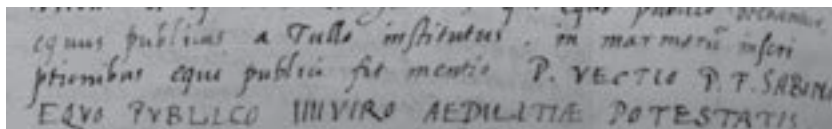 equo publico
equus publicus a Tullo institutus. in marmorũ inscri
ptionibus equi publici fit mentio P. VECTIO P. F. SABINO
EQVO PVBLICO IIIIVIRO AEDILITIÆ POTESTATIS